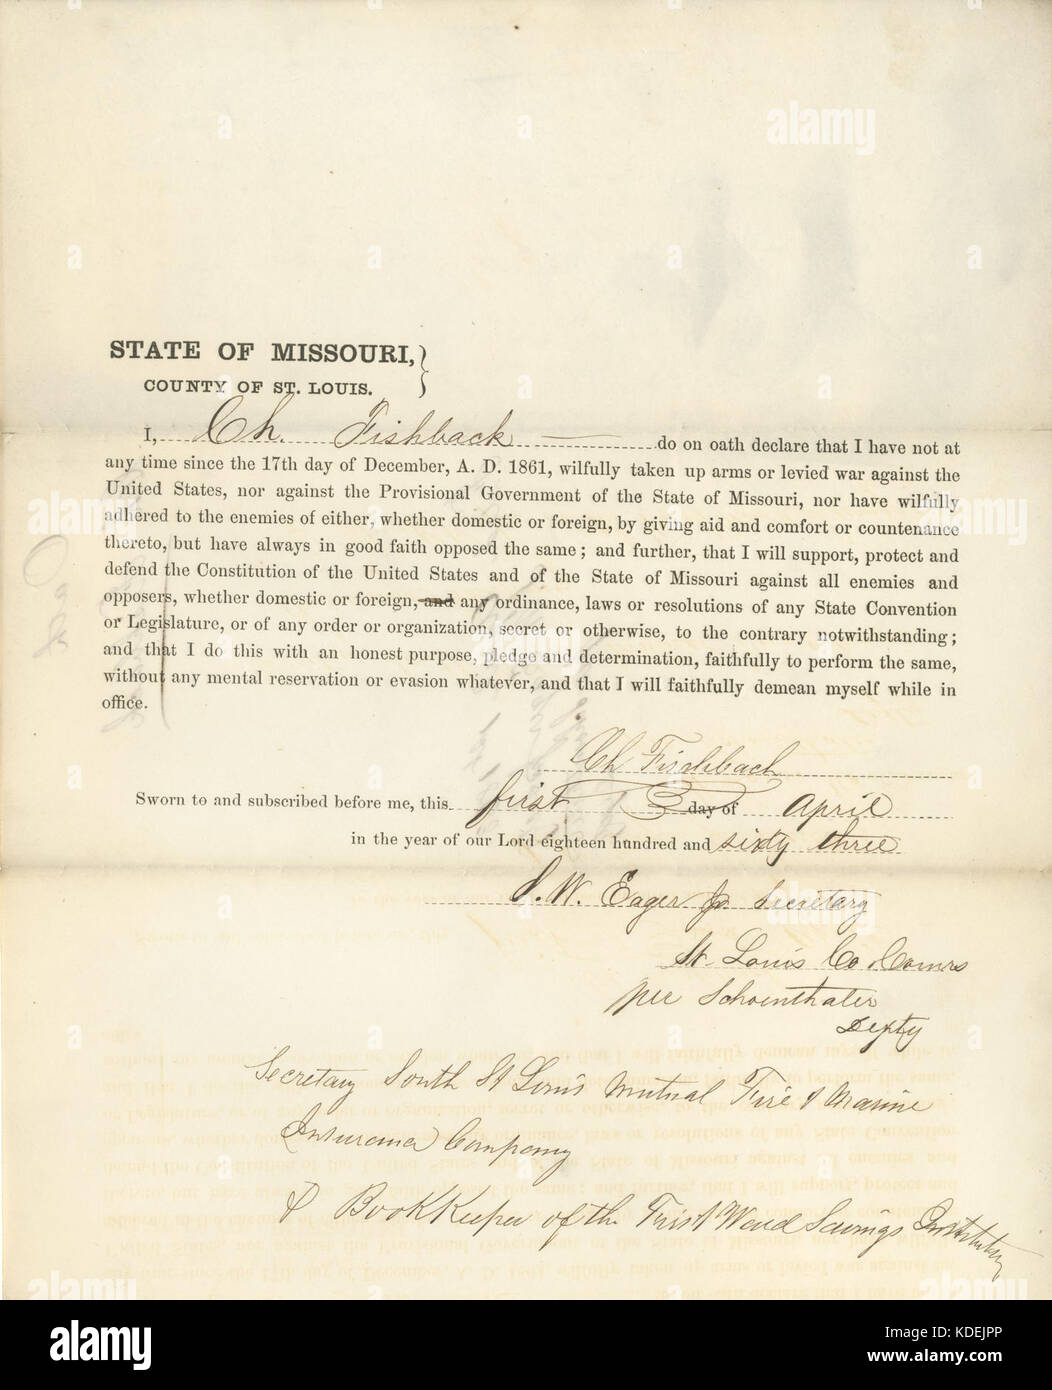 STATE OF MISSOURI, }
COUNTY OF ST. LOUIS.
I, Ch. Fishback do on oath declare that I have not at
any time since the 17th day of December, A. D. 1861, wilfully taken up arms or levied war against the
United States, nor against the Provisional Government of the State of Missouri, nor have wilfully
adhered to the enemies of either, whether domestic or foreign, by giving aid and comfort or countenance
thereto, but have always in good faith opposed the same; and further, that I will support, protect and
defend the Constitution of the United States and of the State of Missouri against all enemies and
opposers, whether domestic or foreign, and any ordinance, laws or resolutions of any State Convention
or Legislature, or of any order or organization, secret or otherwise, to the contrary notwithstanding;
and that I do this with an honest purpose, pledge and determination, faithfully to perform the same,
without any mental reservation or evasion whatever, and that I will faithfully demean myself while in
office.
Ch Fischbach
Sworn to and subscribed before me, this first day of April
in the year of our Lord eighteen hundred and sixty three
S. W. Eager Jr. Secretary
St. Louis Co Comrs
per Schoenthaler
Depty
Secretary South St Louis Mutual Fire & Marine
Insurance Company
& BookKeeper of the First Ward Savings Institution
alamy
Image ID: KDEJPP
www.alamy.com